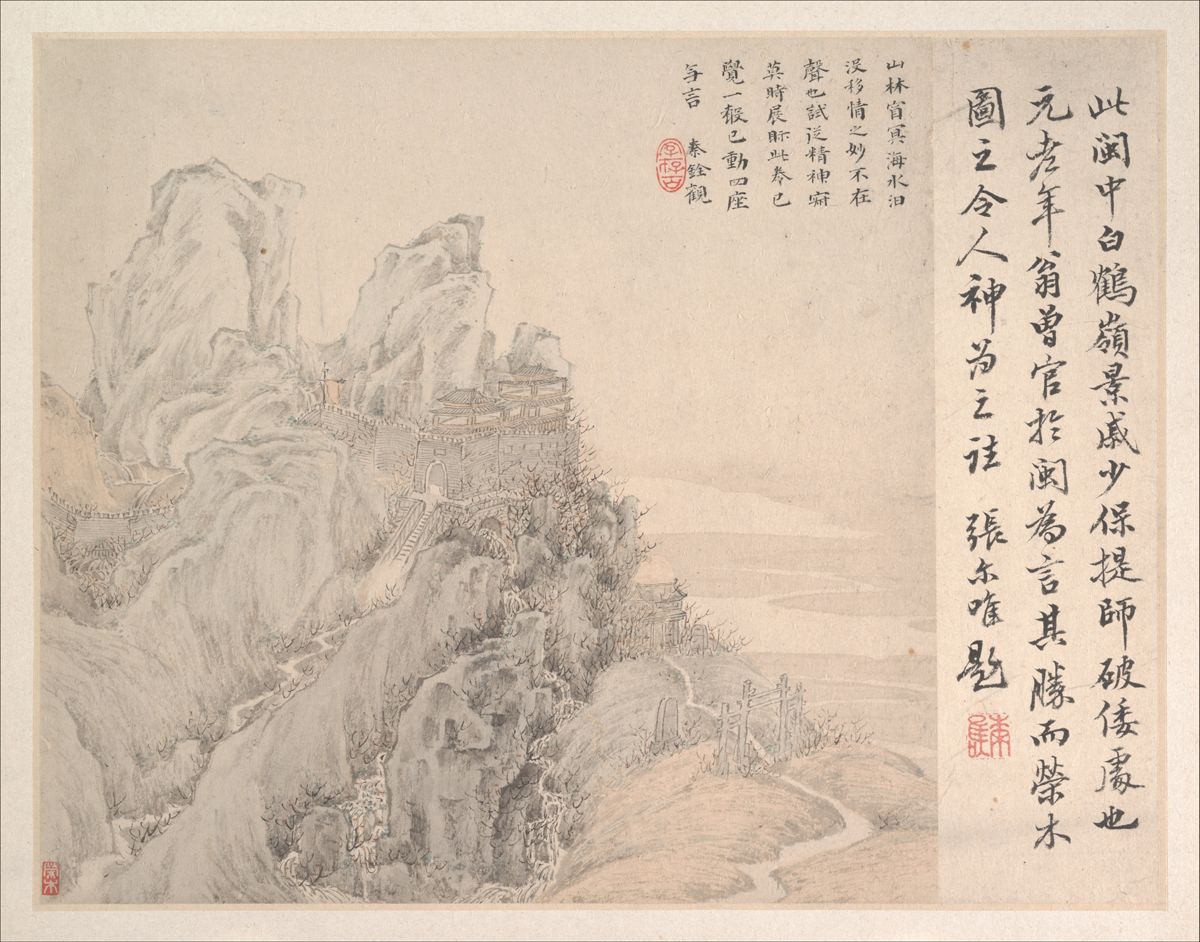 此閩中白鶴嶺景戚少保提師破倭處也
元老年翁曾官於閩為言其勝而榮木
圖之令人神為之往 張尔唯題
山林窅冥海水汩
沒移情之妙不在
聲也試從精神寂
莫時展眎此卷已
覺一殸已動四座
无言 秦銓觀
榮木